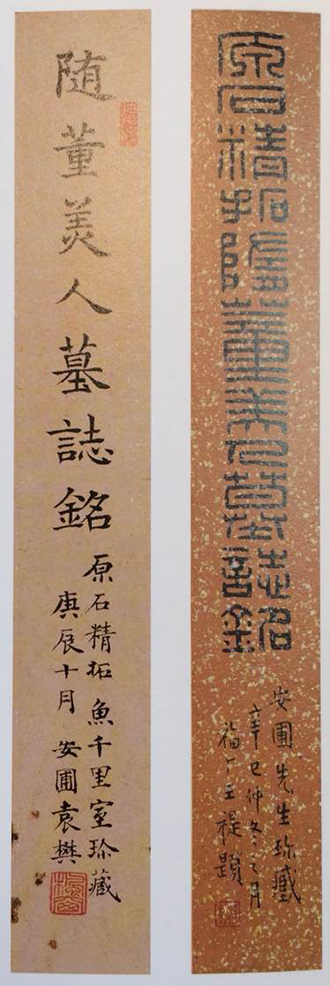 原石精拓隋董美人墓志銘
安圃先生珍藏
辛巳仲冬之月
福厂王禔題
随董美人墓誌銘
原石精拓 魚千里室珍藏
庚辰十月 安圃袁樊